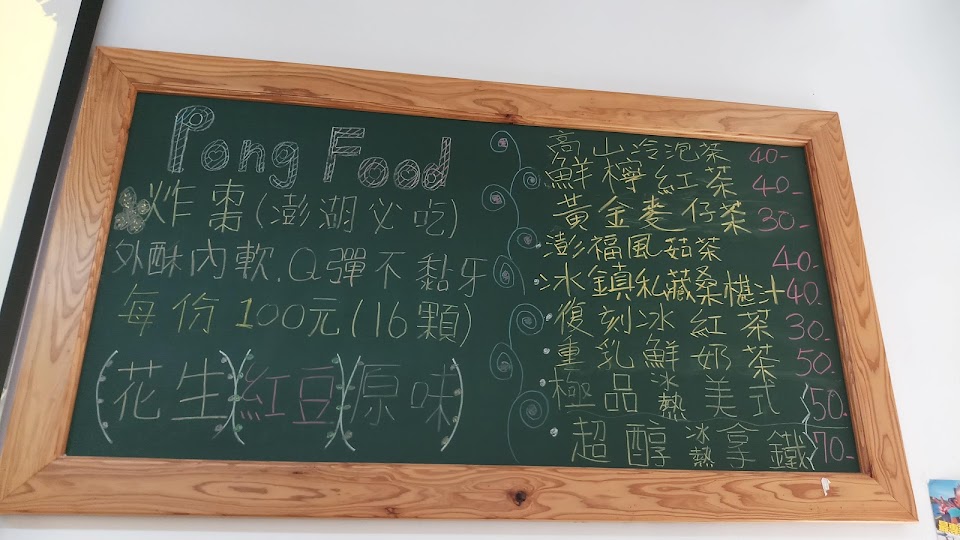 Pong Food
炸棗(澎湖必吃)
外酥內軟.Q彈不黏牙
每份100元(16顆)
(花生)(紅豆)(原味)
高山冷泡茶 40.-
鮮檸紅茶 40.-
黃金麥仔茶 30.-
澎福風茹茶 40.-
冰鎮私藏桑椹汁 40.
復刻冰紅茶 30.-
重乳鮮奶茶 50.
極品冰熱美式 50.-
超醇冰熱拿鐵 70.-